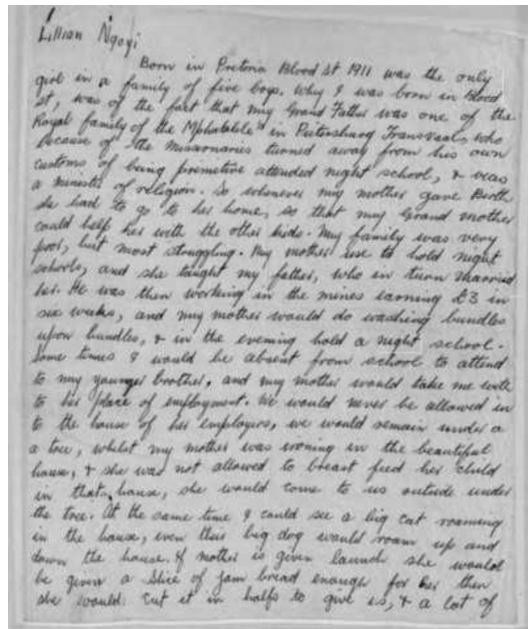 Lillian Ngoyi
Born in Pretoria Blood St 1911 was the only
girl in a family of five boys. Why I was born in Blood
St, was of the fact that my Grand Father was one of the
Royal family of the Mphatlele's in Pietersburg Transvaal, who
because of the Missionaries turned away from his own
customs of being premetive attended night school, & was
a minister of religion. So whenever my mother gave Birth
she had to go to her home, so that my Grand mother
could help her with the other kids. My family was very
poor, but most struggling. My mother use to hold night
schools, and she taught my father, who in turn married
her. He was then working in the mines earning £3 in
six weeks, and my mother would do washing bundles
upon bundles, & in the evening hold a night school.
Some times I would be absent from school to attend
to my younger brother, and my mother would take me with
to her place of employment. We would never be allowed in
to the house of her employers, we would remain under a
a tree, whilst my mother was ironing in the beautiful
house, & she was not allowed to breast feed her child
in that house, she would come to us outside under
the tree. At the same time I could see a big cat roaming
in the house, even their big dog would roam up and
down the house. If mother is given launch she would
be given a slice of jam bread enough for her then
she would cut it in halfs to give us, & a lot of